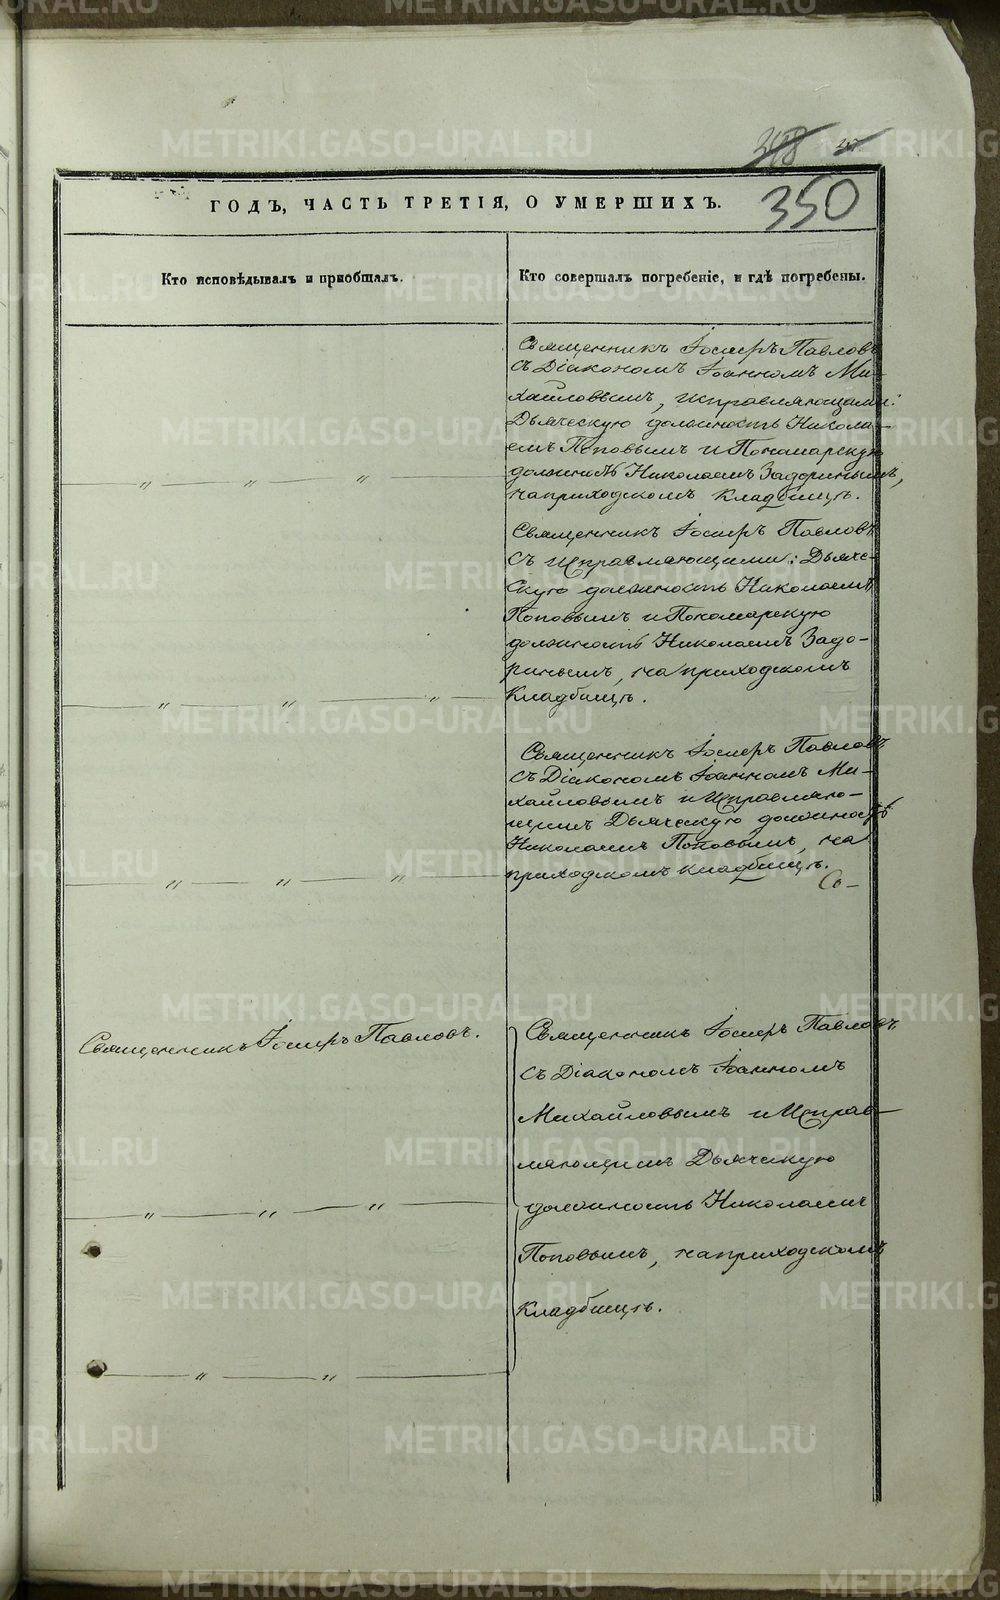 348
350
ГОДЪ, ЧАСТЬ ТРЕТІЯ, О УМЕРШИХЪ.
Кто исповѣдывалъ и пріобщалъ.
Кто совершалъ погребеніе, и гдѣ погребены.
Священникъ Іосифъ Павловъ
съ Діакономъ Іоанномъ Ми-
хайловымъ, исправляющими:
Дьяческую должность Никола-
емъ Поповымъ и Пономарскую
должность Николаемъ Задоринымъ,
на приходскомъ кладбищѣ.
Священникъ Іосифъ Павловъ
съ исправляющими: Дьяче-
скую должность Николаемъ
Поповымъ и Пономарскую
должность Николаемъ Задо-
ринымъ, на приходскомъ
кладбищѣ.
Священникъ Іосифъ Павловъ
съ Діакономъ Іоанномъ Ми-
хайловымъ и Исправляю-
щимъ Дьяческую должность
Николаемъ Поповымъ, на
приходскомъ кладбищѣ.
Св-
Священникъ Іосифъ Павловъ.
Священникъ Іосифъ Павловъ
съ Діакономъ Іоанномъ
Михайловымъ и Исправ-
ляющимъ Дьяческую
должность Николаемъ
Поповымъ, на приходскомъ
кладбищѣ.
METRIKI.GASO-URAL.RU